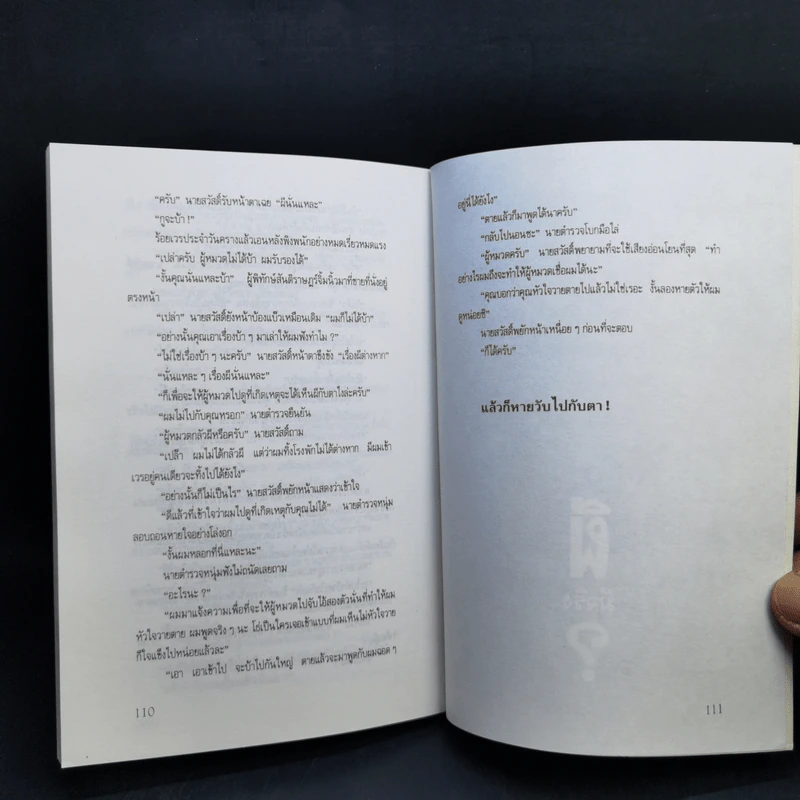 “ครับ” นายสวัสดิ์รับหน้าตาเฉย “ผีนั่นแหละ”
“กูจะบ้า !”
ร้อยเวรประจำวันครางแล้วเอนหลังพิงพนักอย่างหมดเรี่ยวหมดแรง
“เปล่าครับ ผู้หมวดไม่ได้บ้า ผมรับรองได้”
“งั้นคุณนั่นแหละบ้า” ผู้พิทักษ์สันติราษฎร์จิ้มนิ้วมาที่ชายที่นั่งอยู่
ตรงหน้า
“เปล่า” นายสวัสดิ์ยังหน้าบ้องแบ๊วเหมือนเดิม “ผมก็ไม่ได้บ้า”
“อย่างนั้นคุณเอาเรื่องบ้า ๆ มาเล่าให้ผมฟังทำไม ?”
“ไม่ใช่เรื่องบ้า ๆ นะครับ” นายสวัสดิ์หน้าตาขึงขัง “เรื่องผีต่างหาก”
“นั่นแหละ ๆ เรื่องผีนั่นแหละ”
“ก็เพื่อจะให้ผู้หมวดไปดูที่เกิดเหตุจะได้เห็นผีกับตาไงล่ะครับ”
“ผมไม่ไปกับคุณหรอก” นายตำรวจยืนยัน
“ผู้หมวดกลัวผีหรือครับ” นายสวัสดิ์ถาม
“เปล๊า ผมไม่ได้กลัวผี แต่ว่าผมทิ้งโรงพักไม่ได้ต่างหาก มีผมเข้า
เวรอยู่คนเดียวจะทิ้งไปได้ยังไง”
“อย่างนั้นก็ไม่เป็นไร” นายสวัสดิ์พยักหน้าแสดงว่าเข้าใจ
“ดีแล้วที่เข้าใจว่าผมไปดูที่เกิดเหตุกับคุณไม่ได้” นายตำรวจหนุ่ม
ลอบถอนหายใจอย่างโล่งอก
“งั้นผมหลอกที่นี่แหละนะ”
นายตำรวจหนุ่มฟังไม่ถนัดเลยถาม
“อะไรนะ ?”
“ผมมาแจ้งความเพื่อที่จะให้ผู้หมวดไปจับไอ้สองตัวนั่นที่ทำให้ผม
หัวใจวายตาย ผมพูดจริง ๆ นะ โธ่เป็นใครเจอเข้าแบบที่ผมเห็นไม่หัวใจวาย
ก็ใจแข็งไปหน่อยแล้วละ”
“เอา เอาเข้าไป จะบ้าไปกันใหญ่ ตายแล้วจะมาพูดกับผมฉอด ๆ
110
อยู่นี่ได้ยังไง”
“ตายแล้วก็มาพูดได้นาครับ”
“กลับไปนอนซะ” นายตำรวจโบกมือไล่
“ผู้หมวดครับ” นายสวัสดิ์พยายามที่จะใช้เสียงอ่อนโยนที่สุด “ทำ
อย่างไรผมถึงจะทำให้ผู้หมวดเชื่อผมได้นะ”
“คุณบอกว่าคุณหัวใจวายตายไปแล้วไม่ใช่เรอะ งั้นลองหายตัวให้ผม
ดูหน่อยซิ”
นายสวัสดิ์พยักหน้าเหนื่อย ๆ ก่อนที่จะตอบ
“ก็ได้ครับ”
แล้วก็หายวับไปกับตา !
111